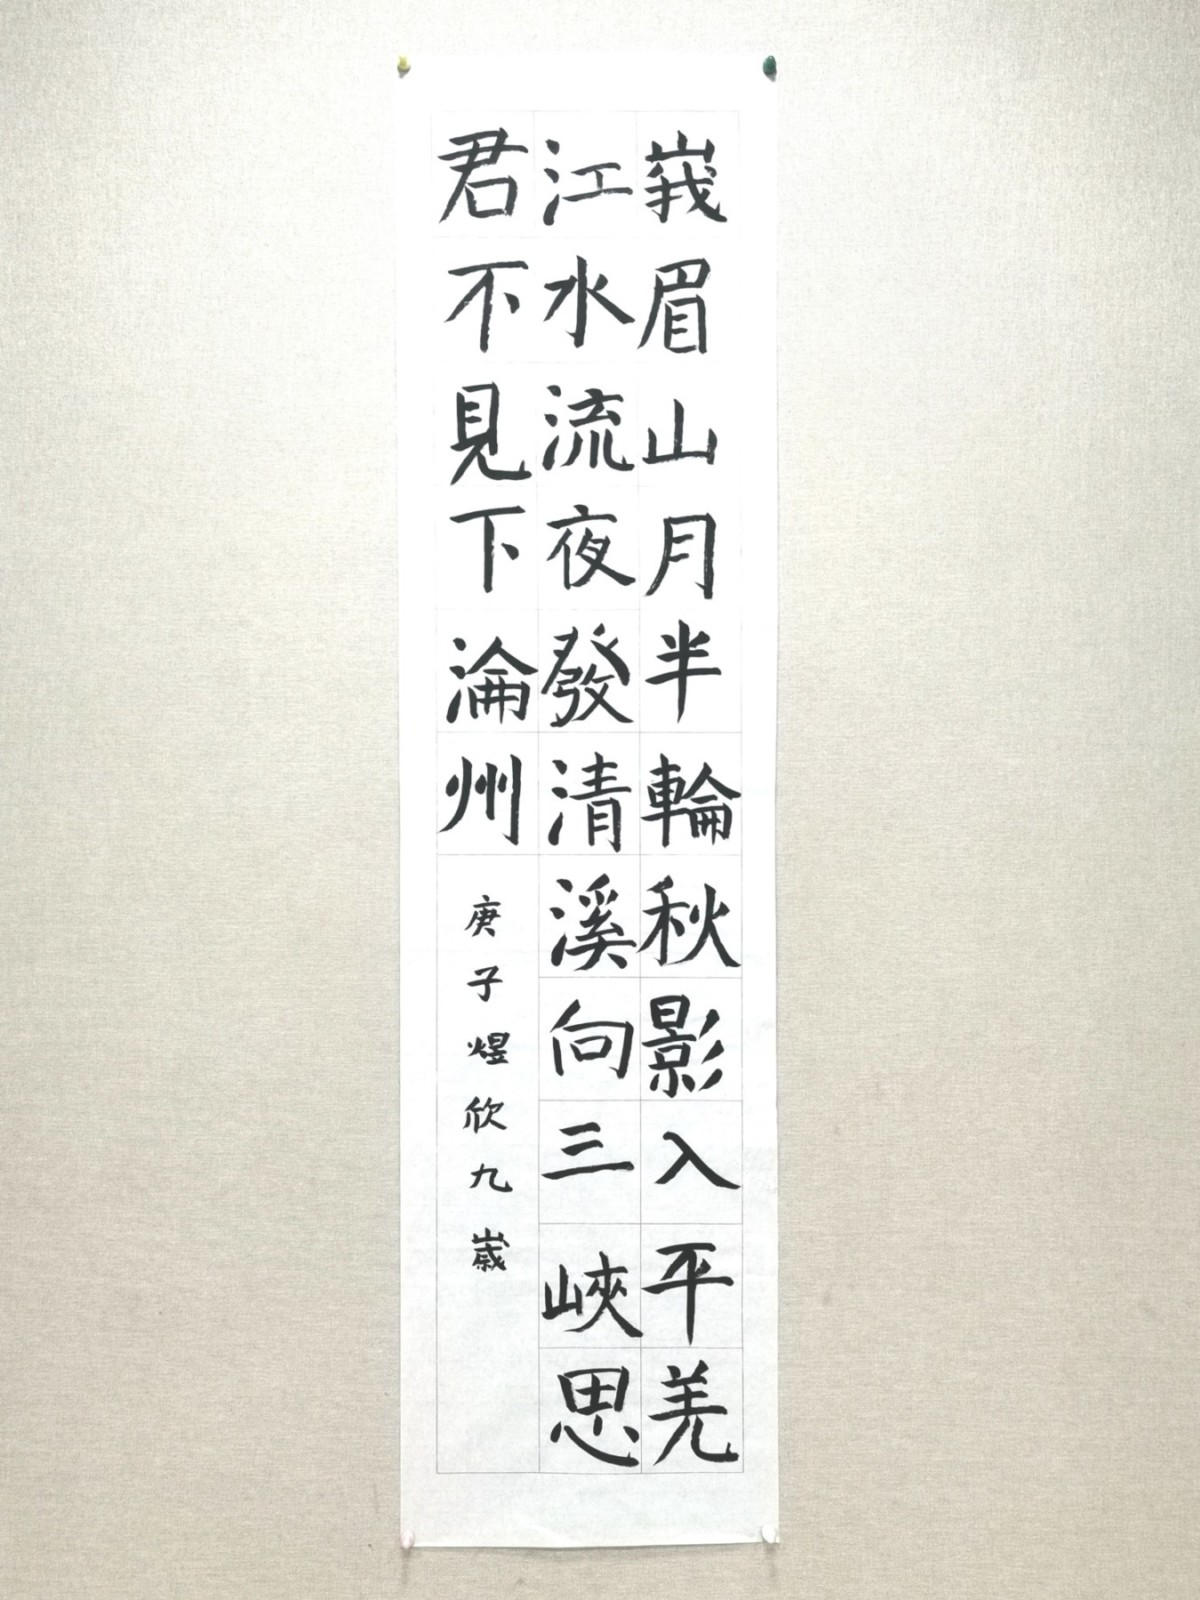 峩眉山月半輪秋影入平羌
江水流夜發清溪向三峽思
君不見下淪州
庚子煜欣九歲